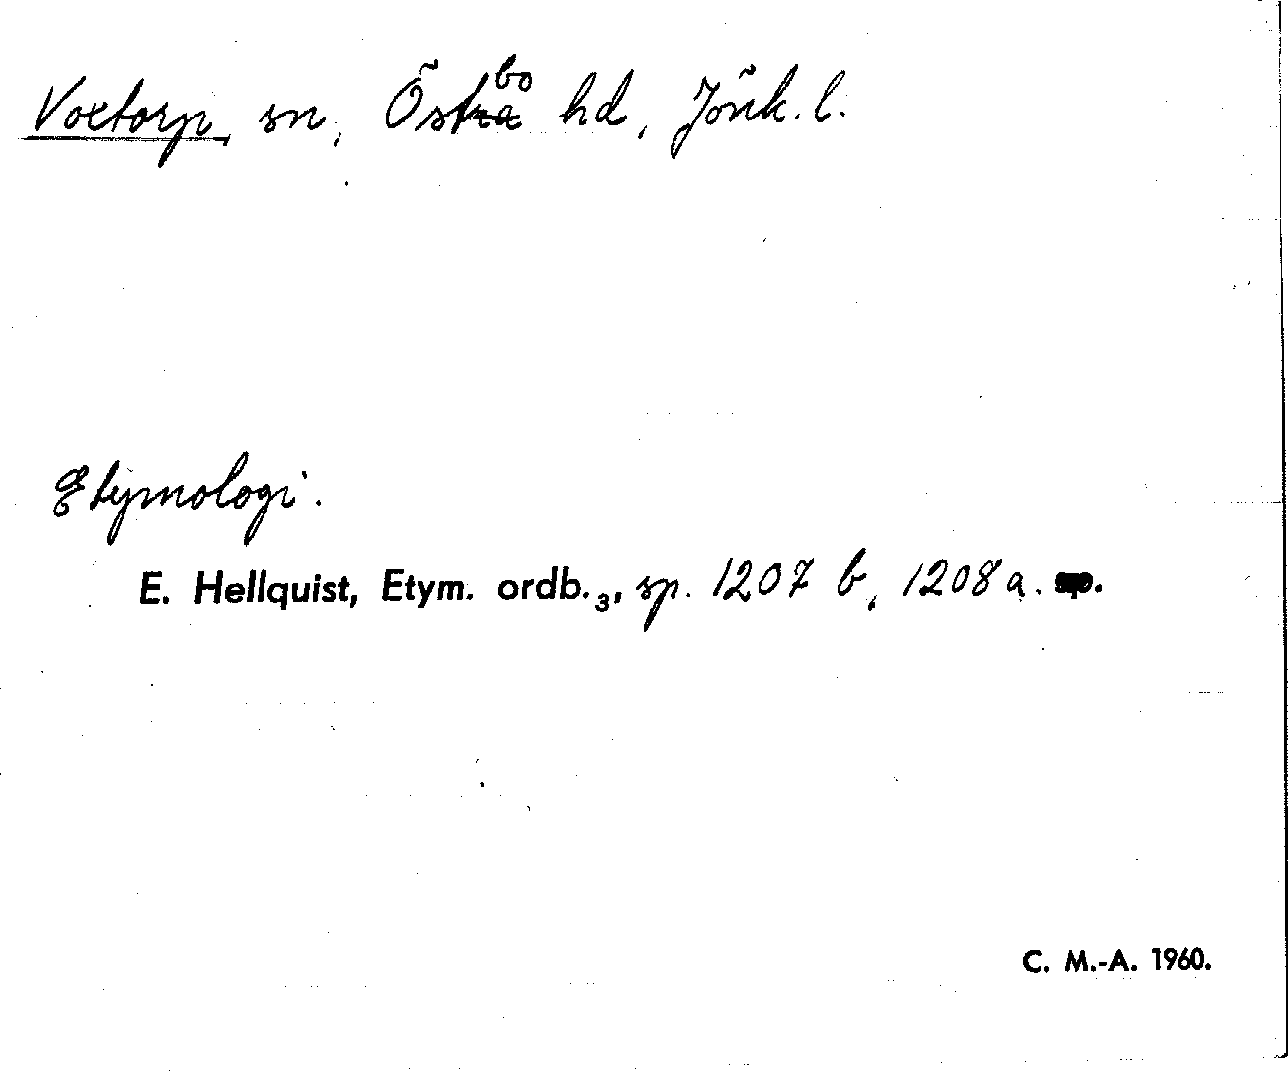 Voxtorp, sn, Östbo hd, Jönk. l.
Etymologi.
E. Hellquist, Etym. ordb.₃, sp. 1207 b, 1208 a.
C. M.-A. 1960.